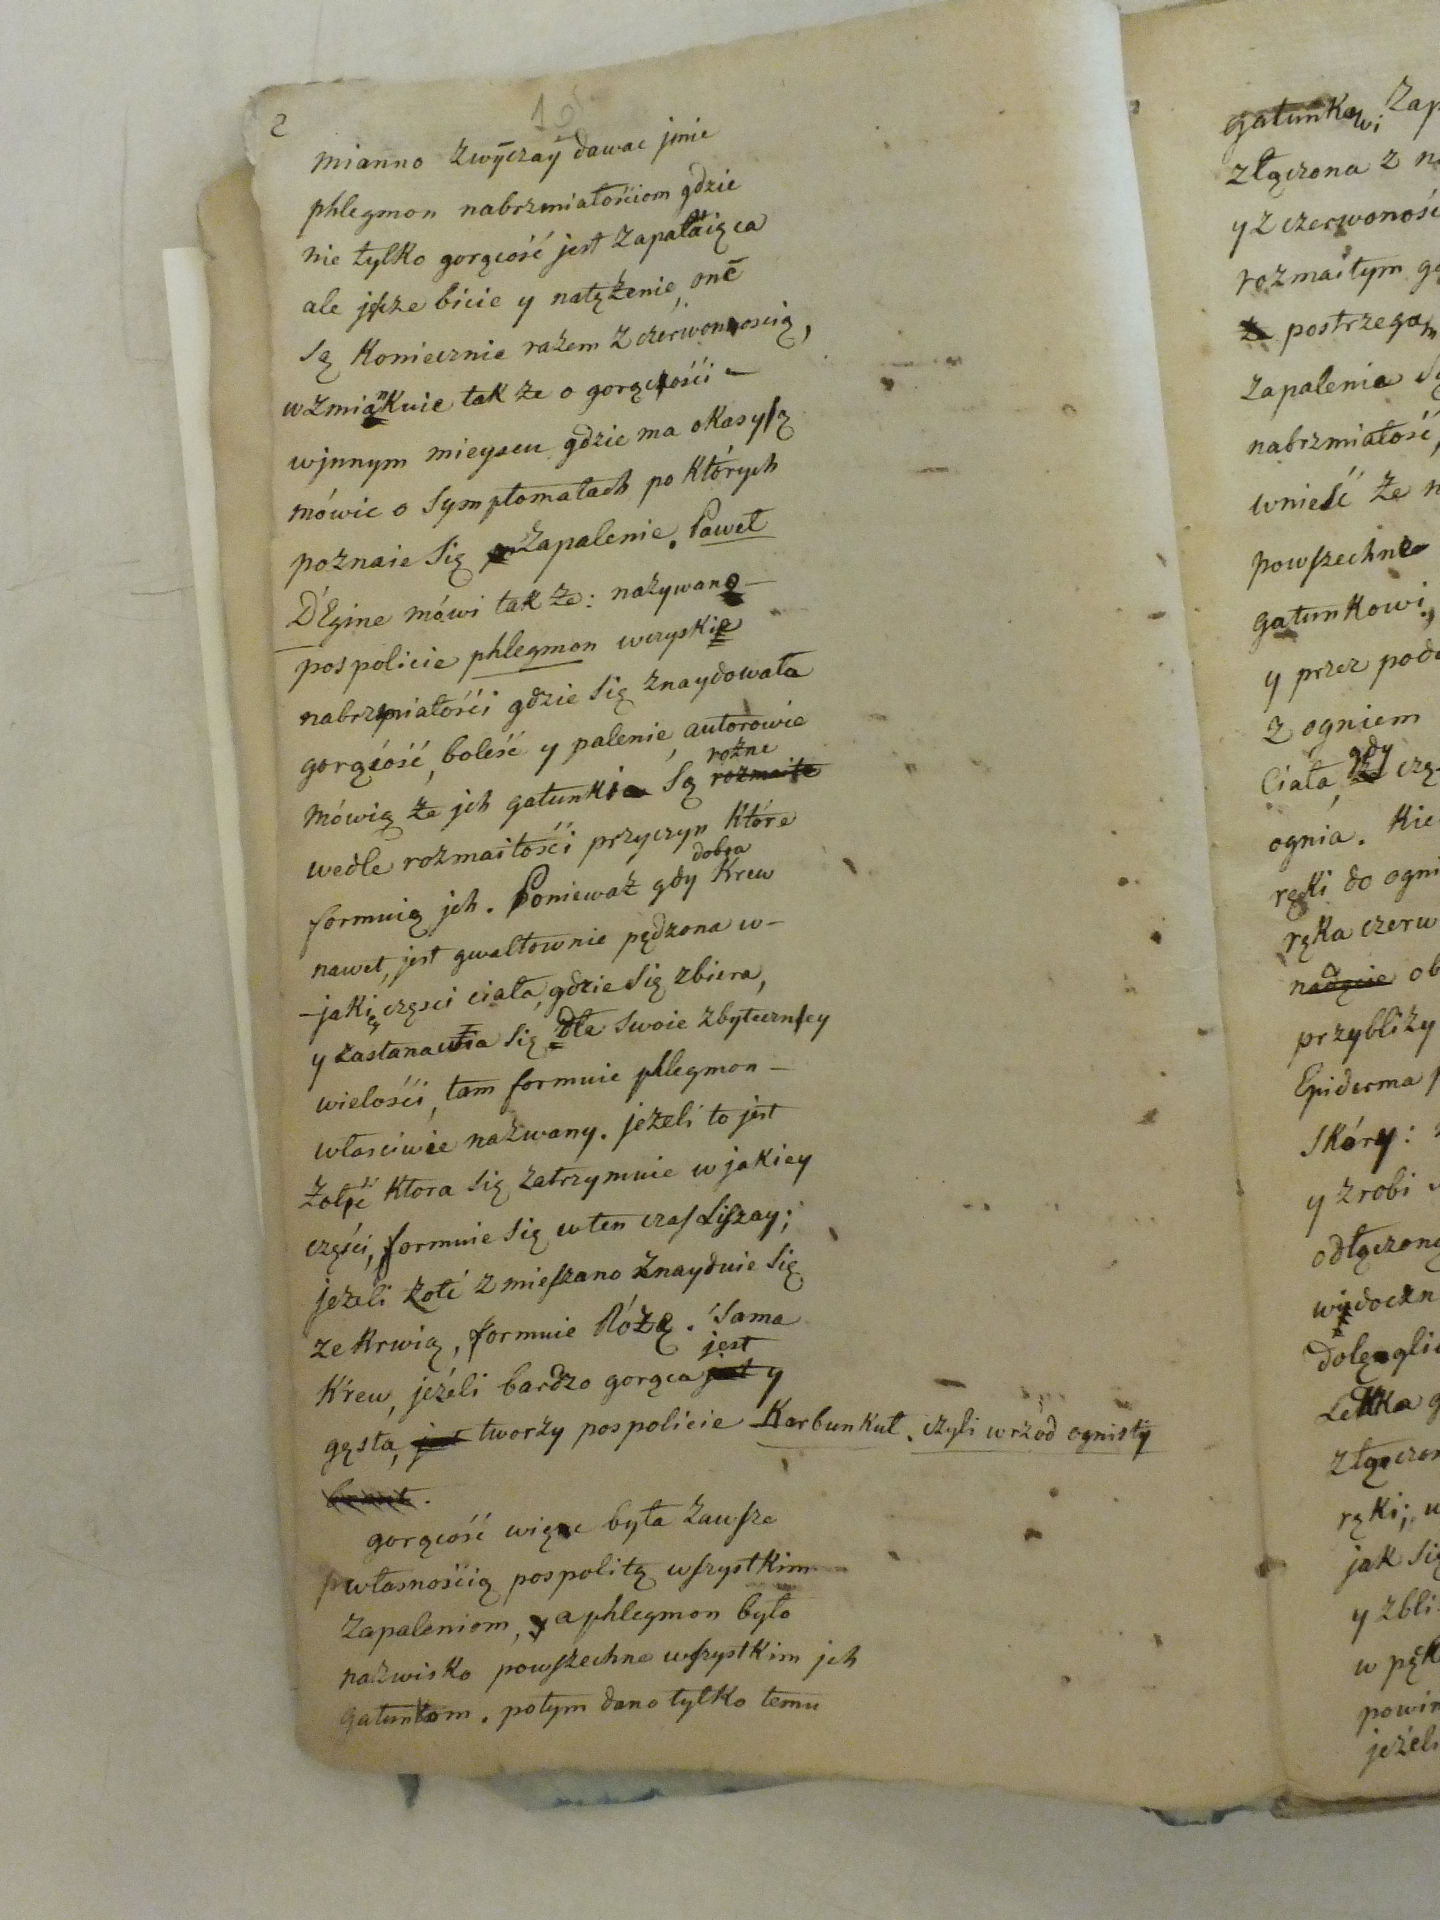 2
mianno zwyczay dawac jmie
phlegmon nabrzmiałościom gdzie
nie tylko gorącość jest zapalaiąca
ale jescze bicie y natężenie, one
są koniecznie razem z czerwonoscią,
wzmiankuie tak że o gorącości –
w jnnym mieyscu gdzie ma okasyją
mówic o symptomatach po których
poznaie się zapalenie. Paweł
D'Egine mówi tak że: nazywano –
pospolicie phlegmon wszyskie
nabrzmiałości gdzie się znaydowała
gorącość, boleść y palenie, autorowie
mówią że jch gatunki są rozmaite rożne
wedle rozmaitości przyczyn które
formuią jch. Ponieważ gdy dobra krew
nawet, jest gwałtownie pędzona w –
– jakiey częsci ciała, gdzie się zbiera,
y zastanawia się dla swoie zbyteczney
wielości, tam formuie phlegmon –
własciwie nazwany. jeżeli to jest
żołć ktora się zatrzymuie w jakiey
części, formuie się w ten czas Liszay;
jeżeli żołć zmieszano znayduie się
ze krwią, formuie Różę. Sama
krew, jeżeli bardzo gorąca jest y
gęsta, jest tworzy pospolicie Karbunkuł. czyli wrzod ognisty
gorącość więc była zawsze
własnością pospolitą wszystkim
zapaleniom, a phlegmon było
nazwisko powszechne wszystkim jch
gatunkom. potym dano tylko temu
gatunkowi zap
złączona z n
y z czerwonośc
rozmaitym ga
postrzegam
zapalenia
nabrzmiałość,
wnieść że n
powszechne
gatunkowi,
y przez pod
z ogniem
Ciała, gdy czę
ognia. Kie
ręki do ogni
ręka czerw
nadęcie ob
przybliży
Epiderma p
Skóry:
y zrobi
odłączone
widoczn
dolęgli
Letka g
złączon
ręki; w
jak się
y zbli
w pęk
powin
jeżeli